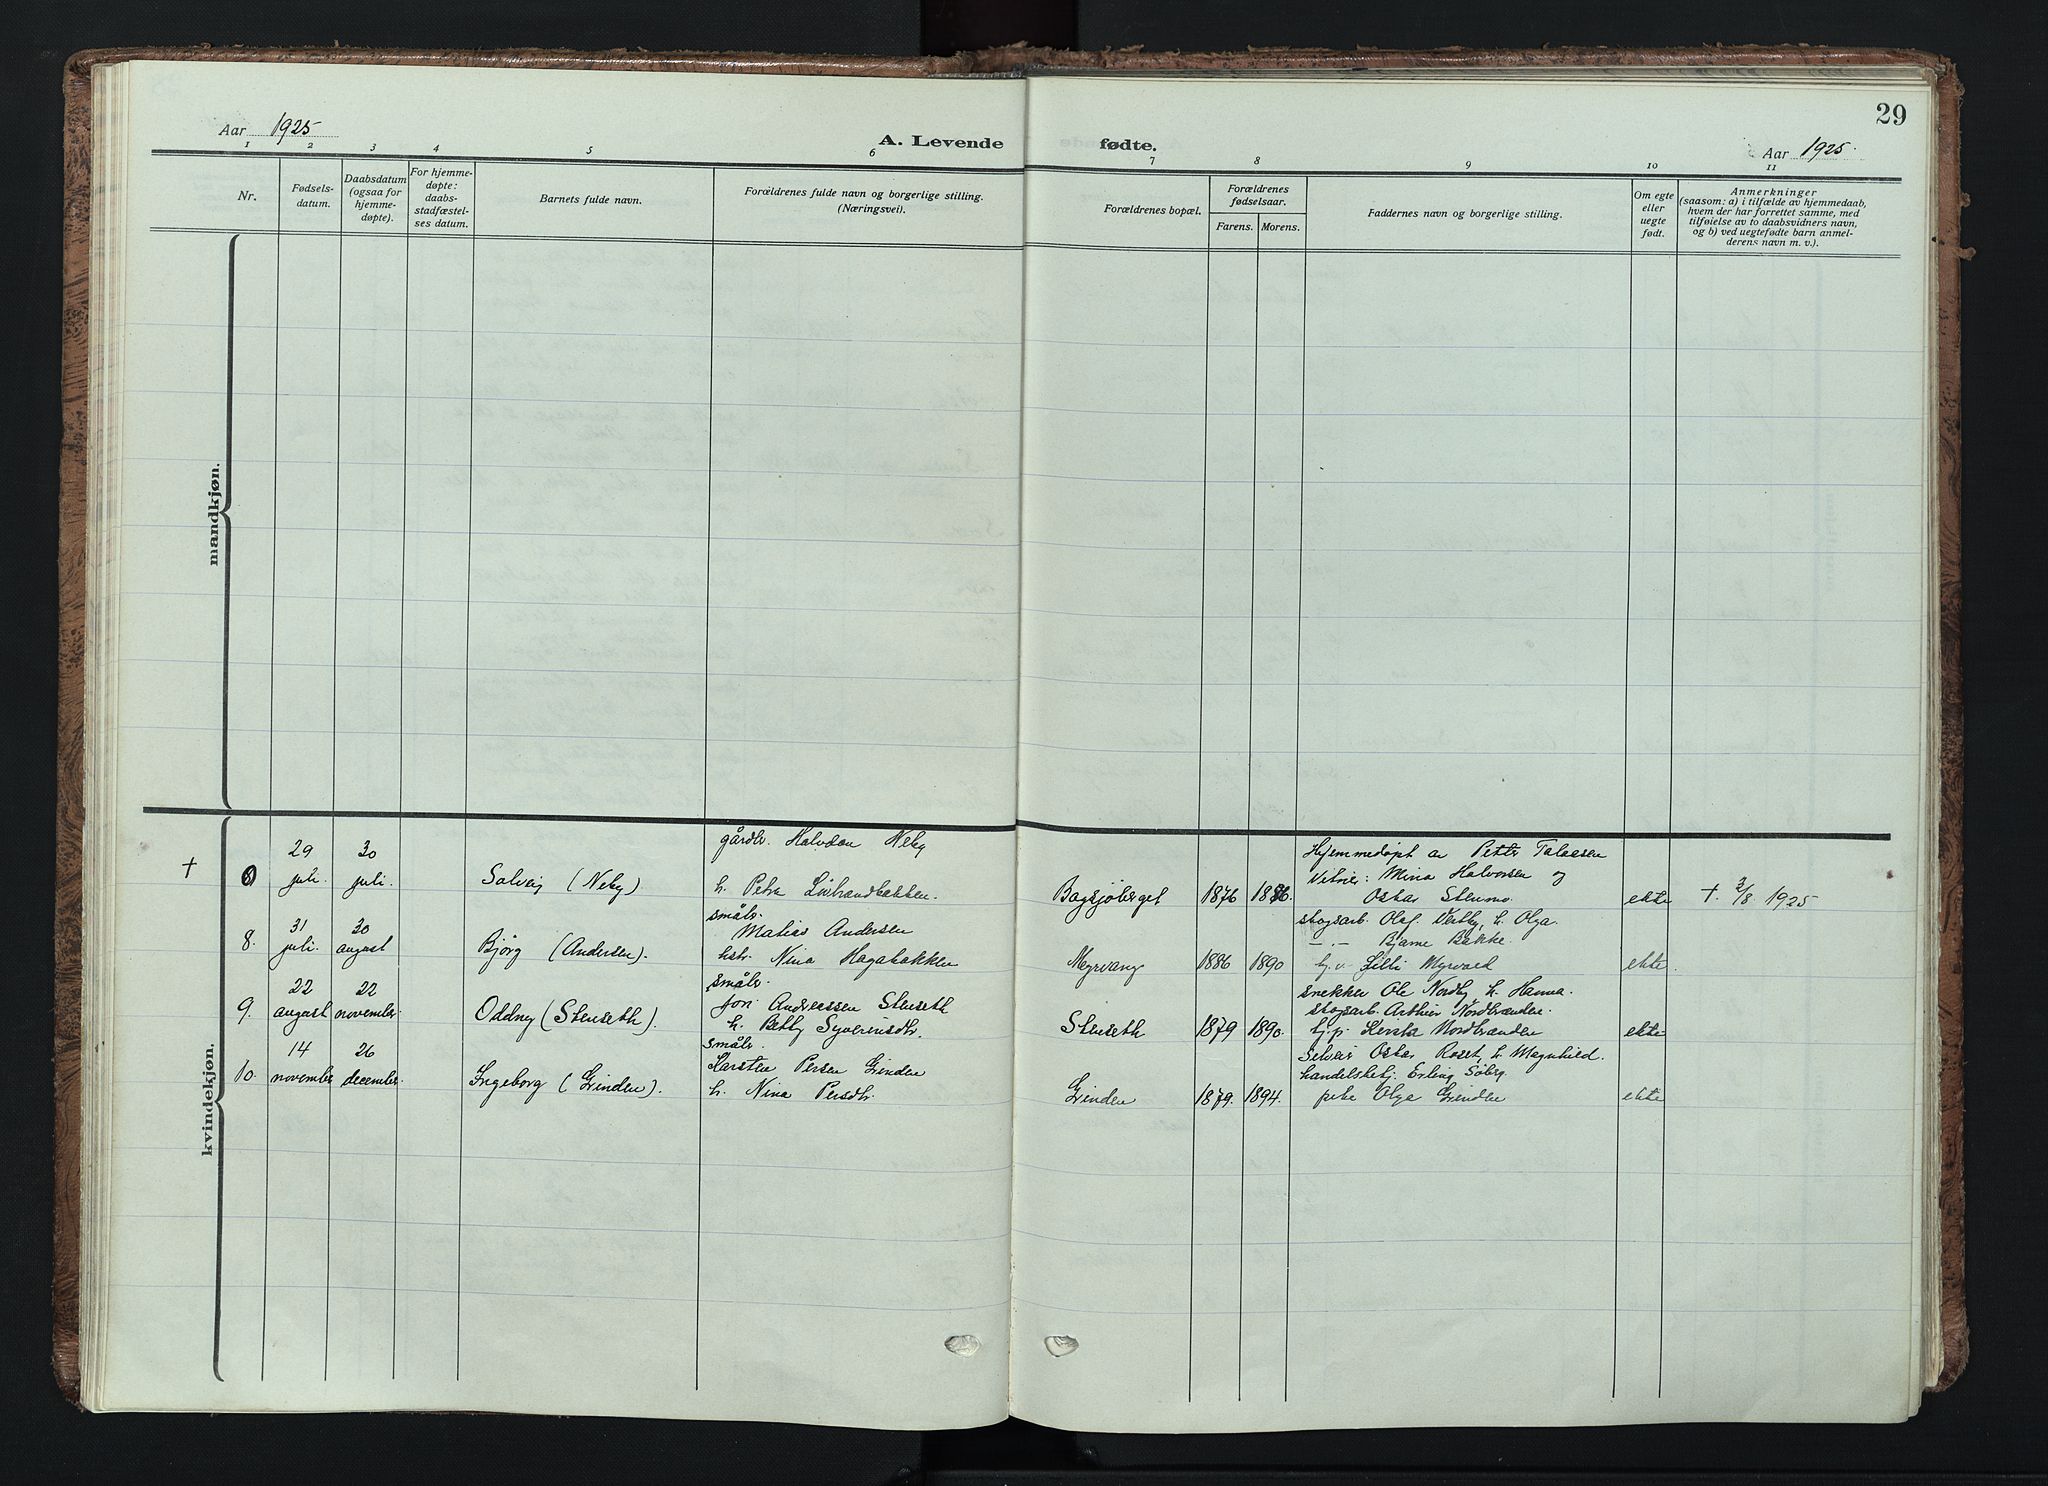 29
Aar 1925
A. Levende fødte.
Aar 1925.
1 2 3 4 5 6 7 8 9 10 11
Nr.
Fødsels-
datum.
Daabsdatum
(ogsaa for
hjemme-
døpte).
For hjemme-
døpte:
daabs-
stadfæstel-
ses datum.
Barnets fulde navn.
Forældrenes fulde navn og borgerlige stilling.
(Næringsvei).
Forældrenes bopæl.
Forældrenes
fødselsaar.
Farens. Morens.
Faddernes navn og borgerlige stilling.
Om egte
eller
uegte
født.
Anmerkninger
(saasom: a) i tilfælde av hjemmedaab,
hvem der har forrettet samme, med
tilføielse av to daabsvidners navn,
og b) ved uegtefødte barn anmel-
derens navn m. v.).
mandkjøn.
kvindekjøn.
29 30 gårdbr. Halvdan Neby Hjemmedøpt av Petter
† juli. juli. Solveig (Neby). h. Petra Bagsjøberget 1876 Vitner: Mina Halvorsen og
Oskar Stenmo. ekte †. 3/8 1925
31 30 småbr. Matias Andersen skogsarb. Olaf h. Olga
8. juli. august Bjørg (Andersen). hstr. Nina Hagabakken Myrvang 1886 1890 —„— Bjarne Bakke.
Lilli Myrvold ekte.
22 22 småbr. Jon Andreassen Stenseth snekker Ole Nordby h. Hanna.
9. august november Oddny (Stenseth). h. Betty Syverinsdtr. Stenseth 1879 1890. skogsarb. Nordbrænden.
Nordbrænden ekte
14 26 småbr. Karsten Persen Grinden Oskar Roset, h. Magnhild.
10. november december. Ingeborg (Grinden). h. Nina Persdtr. Grinden 1879. 1894. handelsbetj. Erling Søberg
pike Olga Grinden ekte